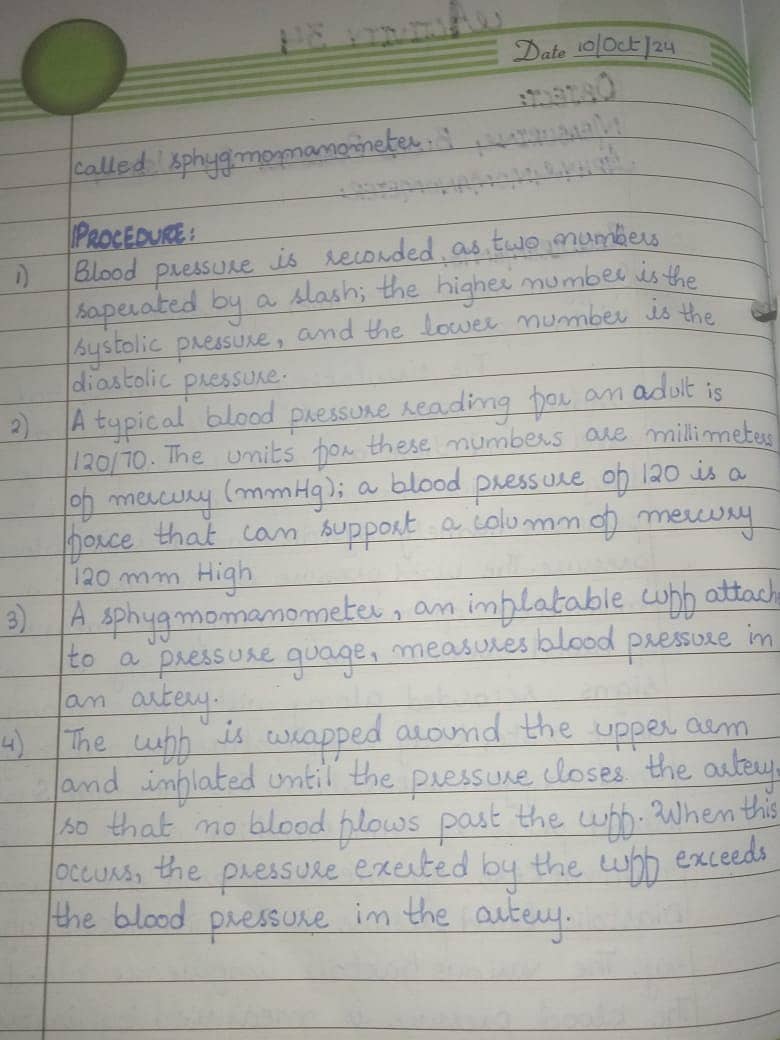 Date 10/Oct/24
called sphygmomanometer.
PROCEDURE:
1) Blood pressure is recorded as two numbers
saperated by a slash; the higher number is the
systolic pressure, and the lower number is the
diastolic pressure.
2) A typical blood pressure reading for an adult is
120/70. The units for these numbers are millimeters
of mercury (mmHg); a blood pressure of 120 is a
force that can support a column of mercury
120 mm High
3) A sphygmomanometer, an inflatable cuff attach
to a pressure guage, measures blood pressure in
an artery.
4) The cuff is wrapped around the upper arm
and inflated until the pressure closes the artery,
so that no blood flows past the cuff. When this
occurs, the pressure exerted by the cuff exceeds
the blood pressure in the artery.